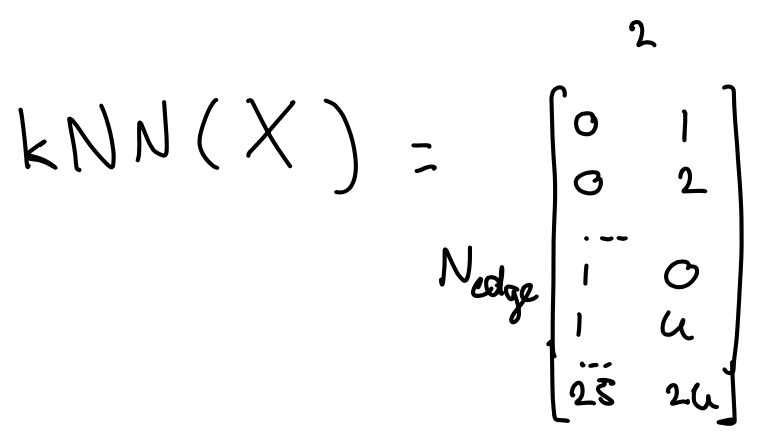 2
kNN(X) =
N_edge
0 1
0 2
...
1 0
1 4
...
25 24